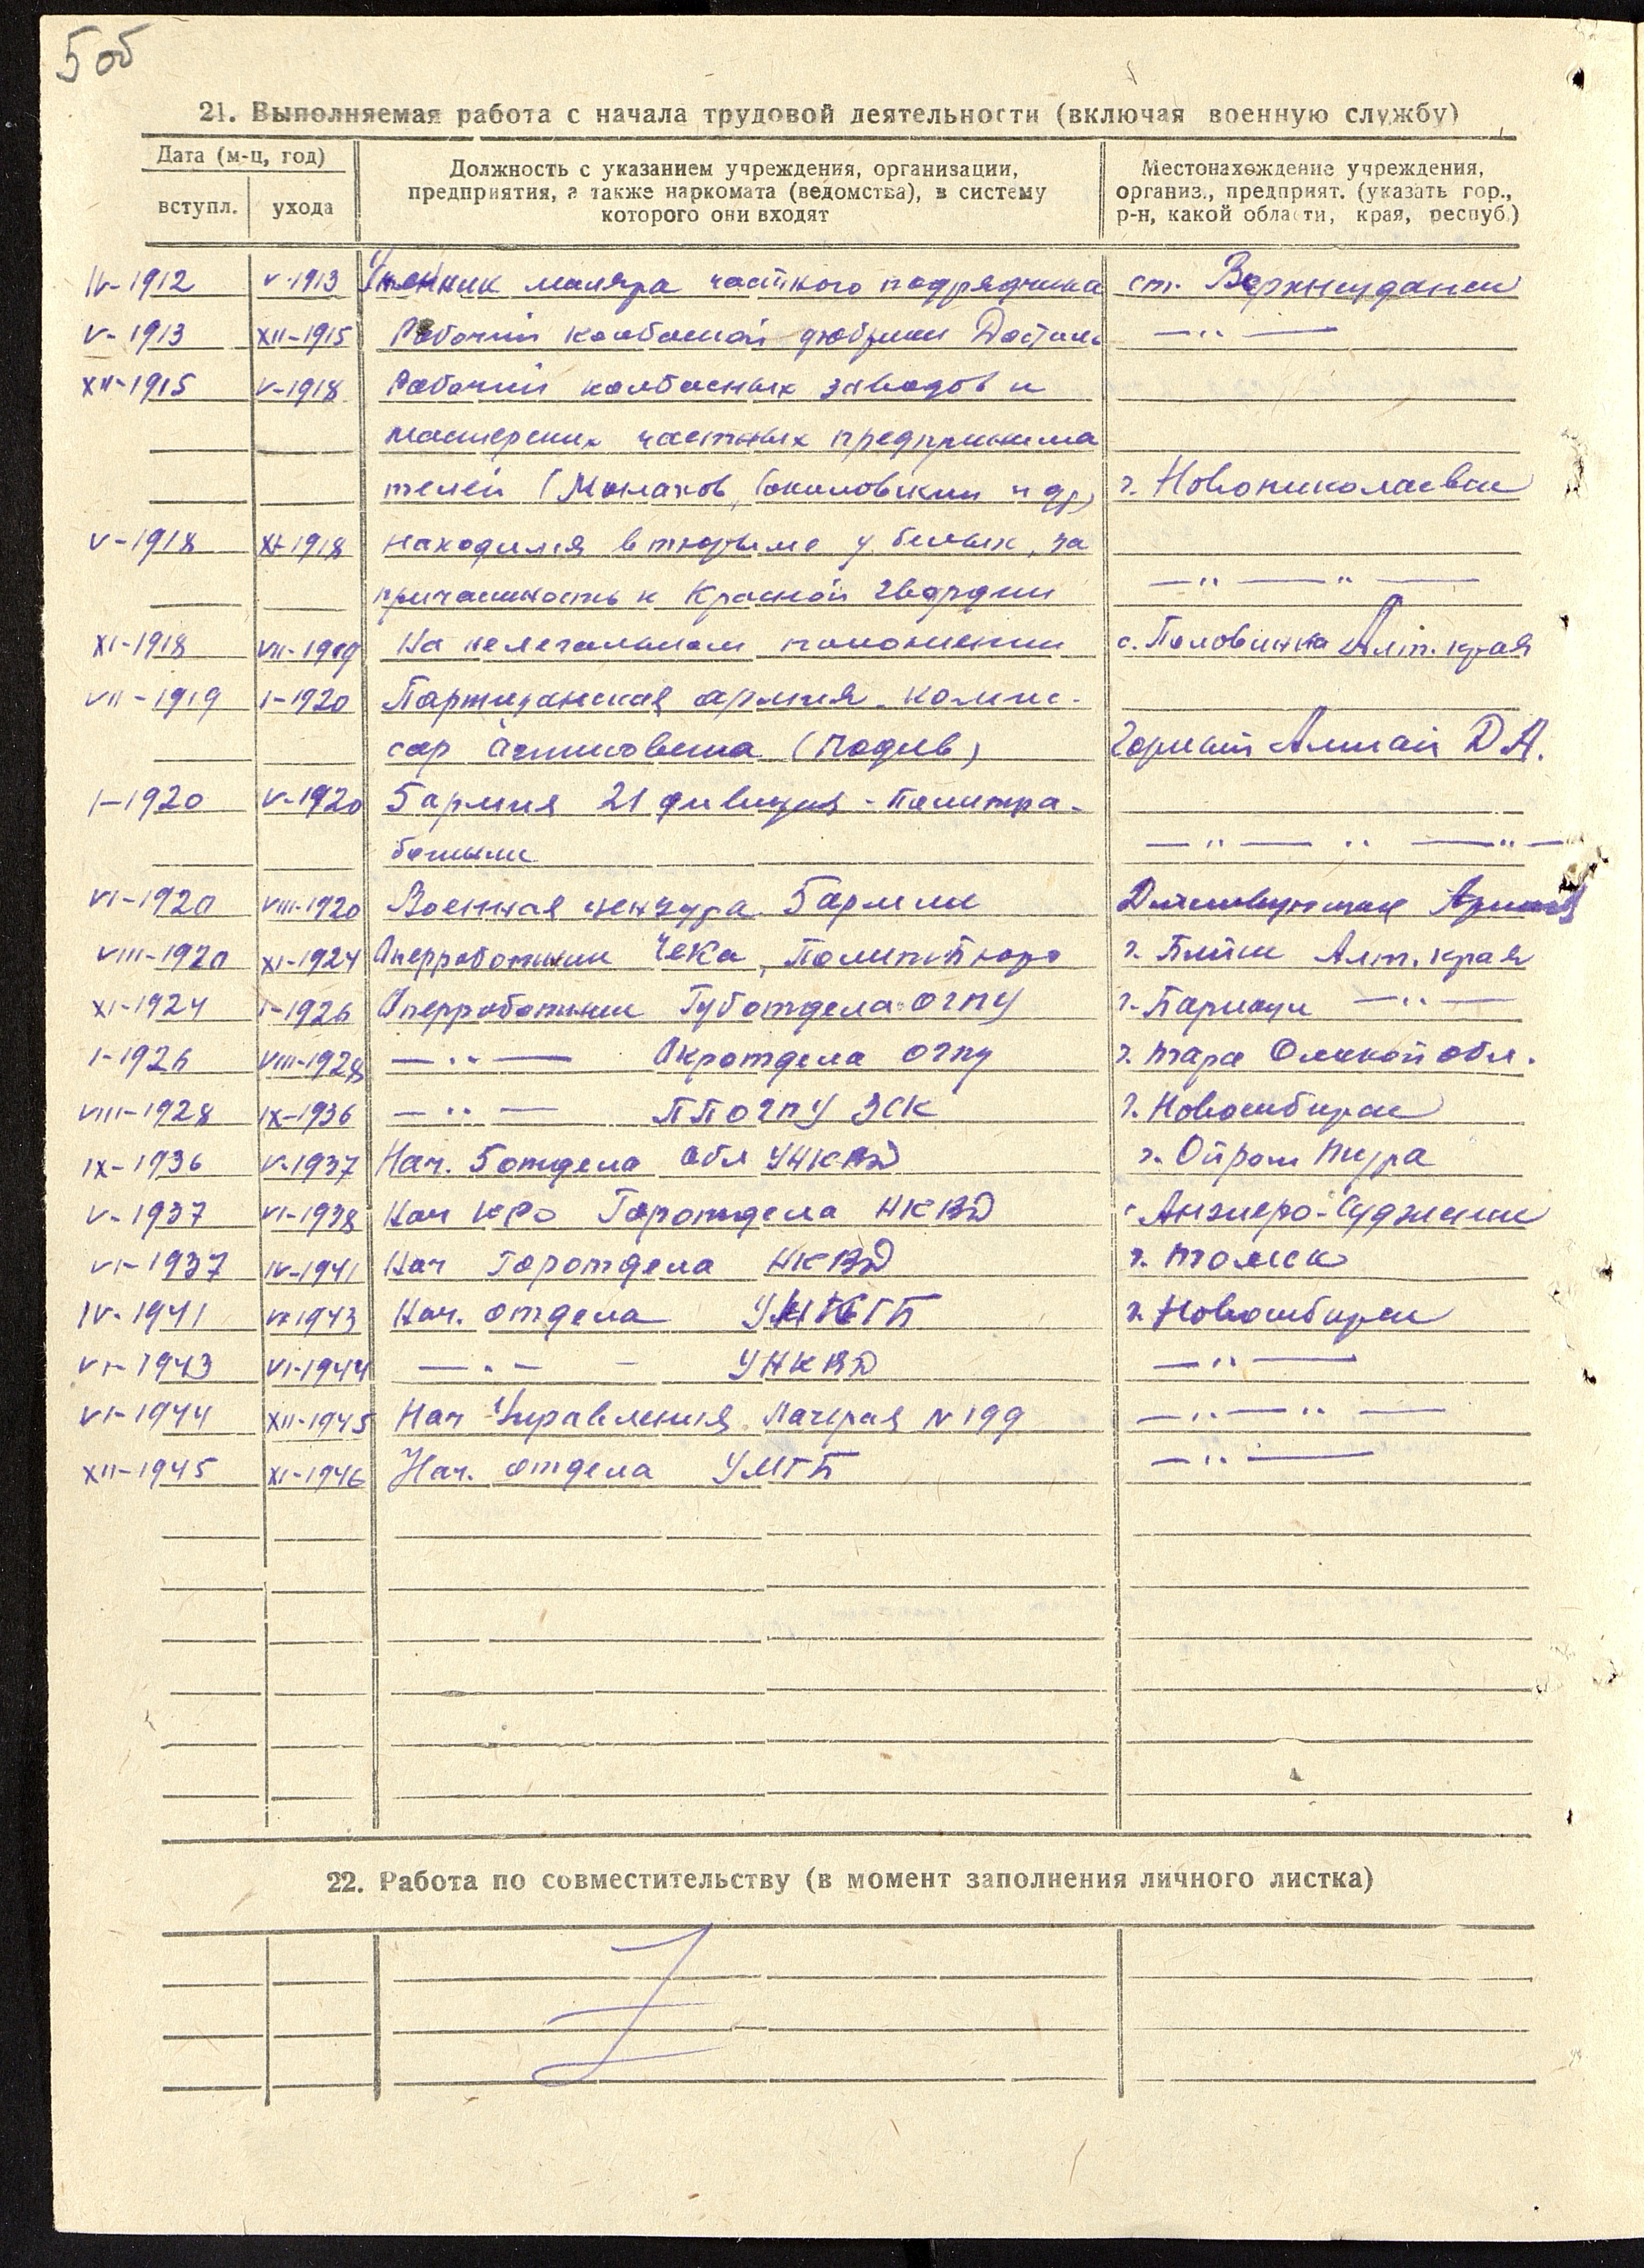 5 об
21. Выполняемая работа с начала трудовой деятельности (включая военную службу)
Дата (м-ц, год)
вступл. ухода
Должность с указанием учреждения, организации,
предприятия, а также наркомата (ведомства), в систему
которого они входят
Местонахождение учреждения,
организ., предприят. (указать гор.,
р-н, какой области, края, респуб.)
IV-1912 V-1913 Ученик маляра частного подрядчика ст. Верхнеудинск
V-1913 XII-1915 Рабочий колбасной фабрики Досталь —"—
XII-1915 V-1918 Рабочий колбасных заводов и
мастерских частных предпринима
телей (Соколовский и др) г. Новониколаевск
V-1918 XI-1918 находился в тюрьме у белых, за
причастность к Красной гвардии —"—"—
XI-1918 VII-1919 На нелегальном положении с. Половинка Алт. края
VII-1919 I-1920 Партизанская армия - комис-
сар (Подив) Горный Алтай
I-1920 V-1920 5 армия 21 дивизия - Политра-
ботник —"—"—"—
VI-1920 VIII-1920 Военная цензура 5 армии Действующая Армия
VIII-1920 XI-1924 Оперработник ЧеКа, Политбюро г. Бийск Алт. края
XI-1924 I-1926 Оперработник Губотдела ОГПУ г. Барнаул —"—
I-1926 VIII-1928 —"— Окротдела ОГПУ г. Тара Омской обл.
VIII-1928 IX-1936 —"— ПП ОГПУ ЗСК г. Новосибирск
IX-1936 V-1937 Нач. 5 отдела Обл УНКВД г. Ойрот Тура
V-1937 VI-1938 Нач КРО Горотдела НКВД г Анжеро-Судженск
VI-1937 IV-1941 Нач Горотдела НКВД г. Томск
IV-1941 VI-1943 Нач. отдела УНКГБ г. Новосибирск
VI-1943 VI-1944 —"— УНКВД —"—
VI-1944 XII-1945 Нач Управления Лагеря N 199 —"—"—
XII-1945 XI-1946 Нач. отдела УМГБ —"—
22. Работа по совместительству (в момент заполнения личного листка)